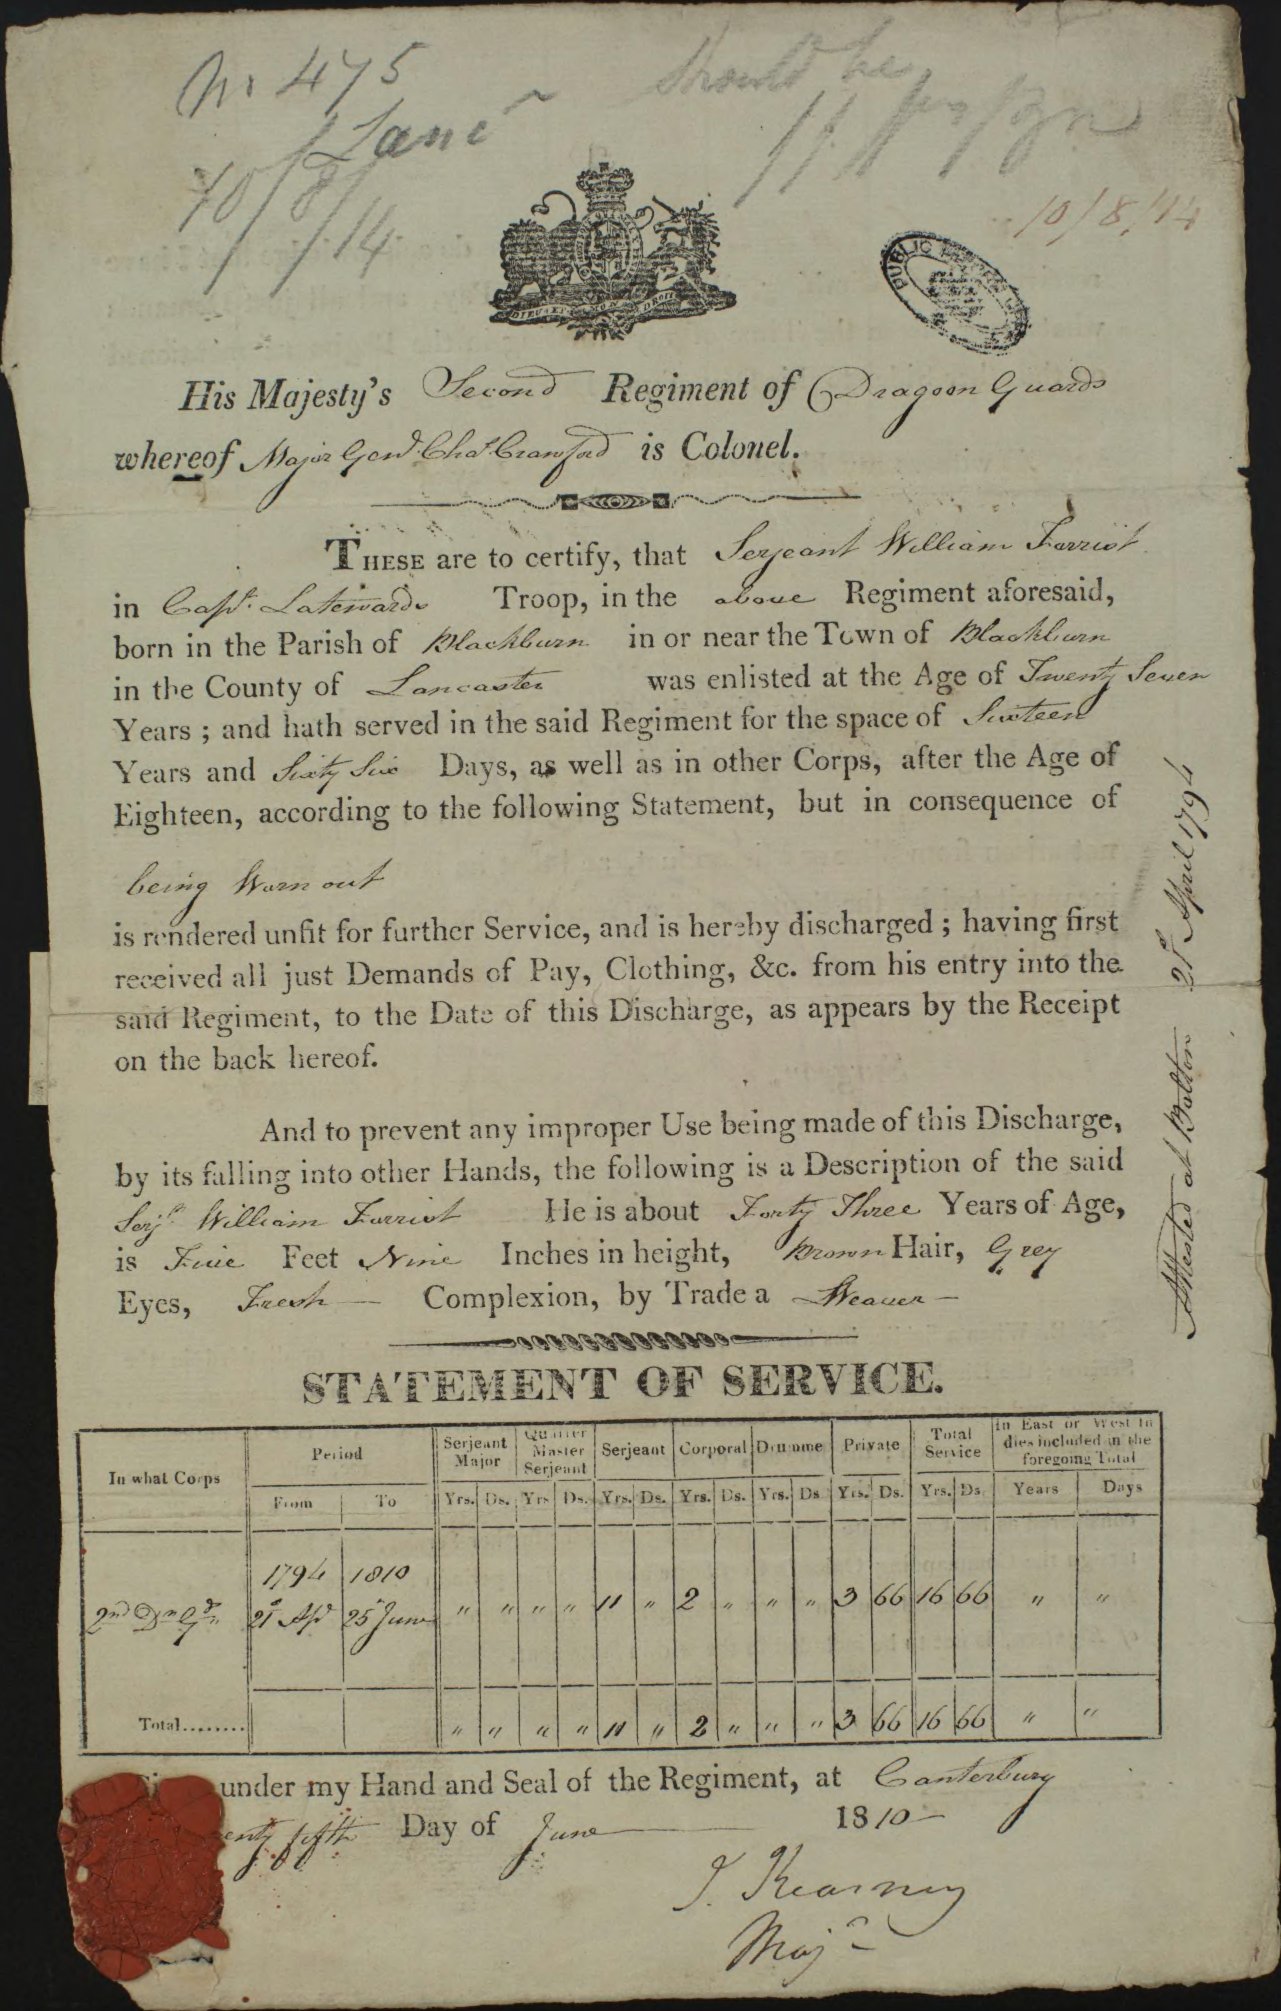 No 475
Lanc
10/8/14
Should be
10/8/14
DIEU ET MON DROIT
PUBLIC
His Majesty's Second Regiment of Dragoon Guards
whereof Major Genl. Chas. Craufurd is Colonel.
THESE are to certify, that Serjeant William Forrist
in Capt. Latewards Troop, in the above Regiment aforesaid,
born in the Parish of Blackburn in or near the Town of Blackburn
in the County of Lancaster was enlisted at the Age of Twenty Seven
Years ; and hath served in the said Regiment for the space of Sixteen
Years and Sixty Six Days, as well as in other Corps, after the Age of
Eighteen, according to the following Statement, but in consequence of
being Worn out
is rendered unfit for further Service, and is hereby discharged ; having first
received all just Demands of Pay, Clothing, &c. from his entry into the
said Regiment, to the Date of this Discharge, as appears by the Receipt
on the back hereof.
And to prevent any improper Use being made of this Discharge,
by its falling into other Hands, the following is a Description of the said
Serjt. William Forrist He is about Forty Three Years of Age,
is Five Feet Nine Inches in height, Brown Hair, Grey
Eyes, Fresh — Complexion, by Trade a Weaver —
Attested at Bolton 21st April 1794
STATEMENT OF SERVICE.
In what Corps Period Serjeant Major Quarter Master Serjeant Serjeant Corporal Drumme Private Total Service In East or West Indies included in the foregoing Total
From To Yrs. Ds. Yrs Ds. Yrs. Ds. Yrs. Ds. Yrs. Ds Yrs. Ds. Yrs. Ds. Years Days
1794 1810
2nd Dn Gds 21st Apl 25 June " " " " 11 " 2 " " " 3 66 16 66 " "
Total........ " " " " 11 " 2 " " " 3 66 16 66 " "
under my Hand and Seal of the Regiment, at Canterbury
enty fifth Day of June — 1810 —
J. Kearney
Majr